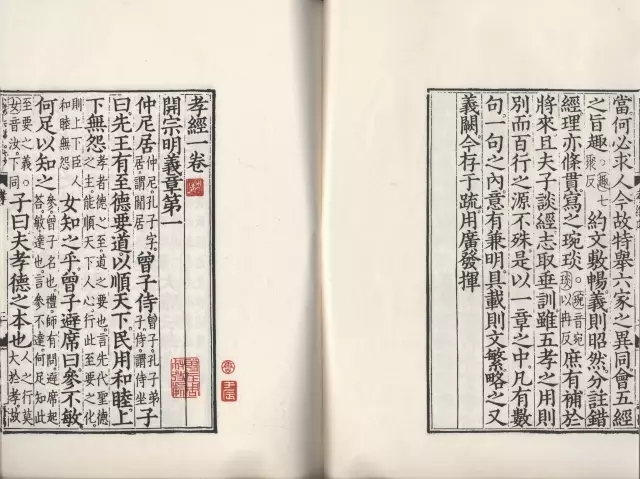 當何必求人今故特舉六家之異同會五經
之旨趣趣七聚反約文敷暢義則昭然分註錯
經理亦條貫寫之琬琰琬音宛琰以冉反庶有補於
將來且夫子談經志取垂訓雖五孝之用則
別而百行之源不殊是以一章之中凡有數
句一句之內意有兼明具載則文繁略之又
義闕今存于疏用廣發揮
孝經一卷
開宗明義章第一
仲尼居仲尼孔子字居謂閒居曾子侍曾子孔子弟子侍謂侍坐子
曰先王有至德要道以順天下民用和睦上
下無怨孝者德之至道之要也言先代聖德之主能順天下人心行此至要之化
則上下臣人和睦無怨女知之乎曾子避席曰參不敏
何足以知之參曾子名也禮師有問避席起荅敏達也言參不達何足知此
至要之義女音汝下同子曰夫孝德之本也人之行莫大於孝故